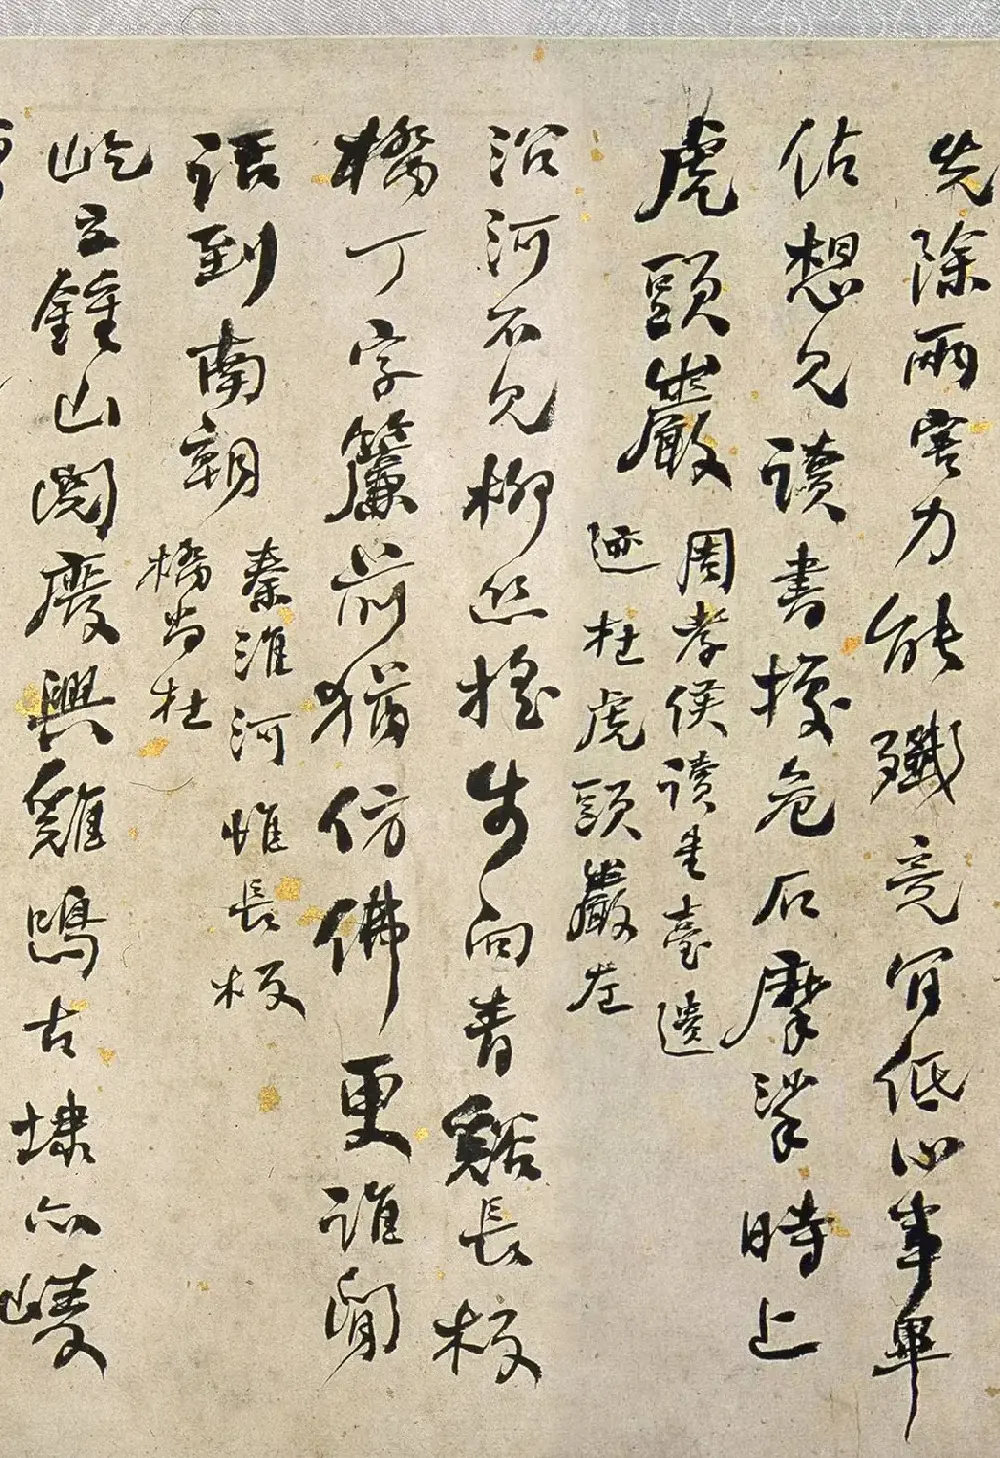 先除兩害力能殲竟肯低心事畢
佔想見讀書據危石摩挲時上
虎頭巖
周孝侯讀書臺遺
迹在虎頭巖左
沿河不見柳絲搖步向青谿長板
橋丁字簾前猶仿佛更誰閒
話到南朝
秦淮河惟長板
橋尚在
屹立鍾山閱廢興雞鳴古埭亦崚